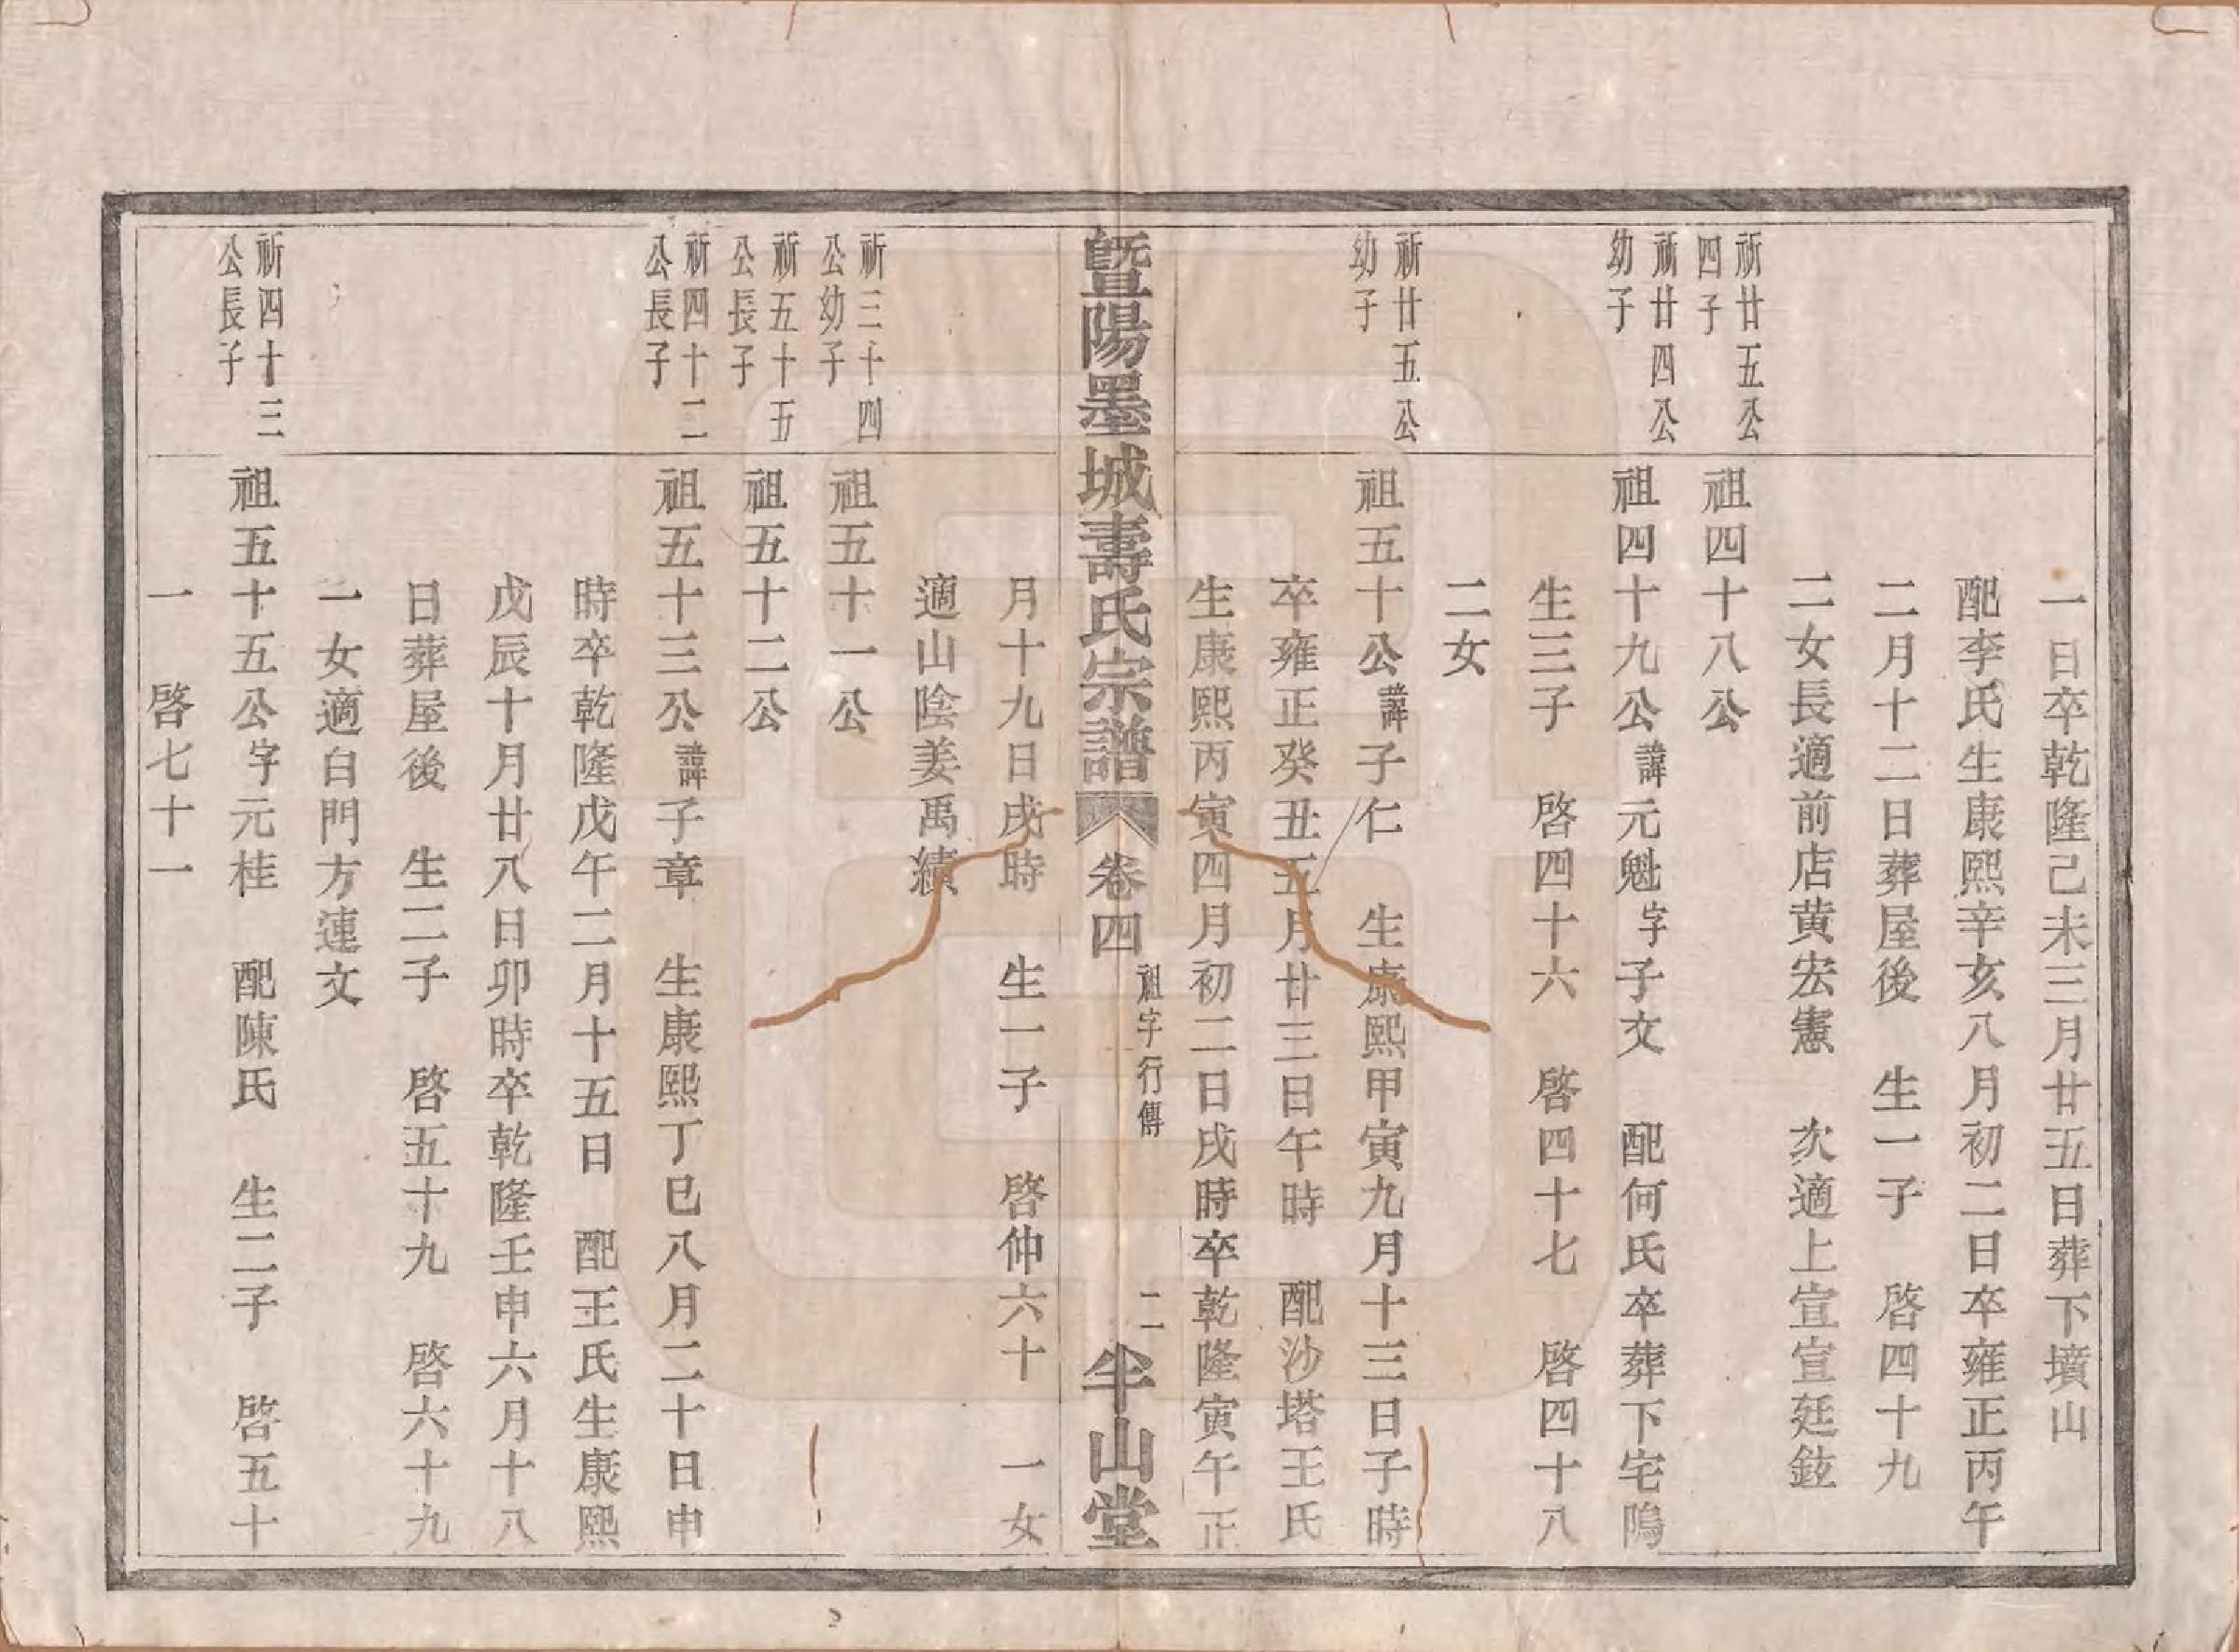 一日卒乾隆己未三月廿五日葬下墳山
配李氏生康熙辛亥八月初二日卒雍正丙午
二月十二日葬屋後　生一子　啓四十九
二女長適前店黃宏憲　次適上宣宣廷鉉
祈廿五公
四子
祖四十八公
祈廿四公
幼子
祖四十九公諱元魁字子文　配何氏卒葬下宅隖
生三子　啓四十六　啓四十七　啓四十八
二女
祈廿五公
幼子
祖五十公諱子仁　生康熙甲寅九月十三日子時
卒雍正癸丑五月廿三日午時　配沙塔王氏
生康熙丙寅四月初二日戌時卒乾隆寅午正
暨陽墨城壽氏宗譜　卷四　祖字行傳　二　半山堂
月十九日戌時　生一子　啓仲六十　一女
適山陰姜禹績
祈三十四
公幼子
祖五十一公
祈五十五
公長子
祖五十二公
祈四十二
公長子
祖五十三公諱子章　生康熙丁巳八月二十日申
時卒乾隆戊午二月十五日　配王氏生康熙
戊辰十月廿八日卯時卒乾隆壬申六月十八
日葬屋後　生二子　啓五十九　啓六十九
一女適白門方連文
祈四十三
公長子
祖五十五公字元桂　配陳氏　生二子　啓五十
一　啓七十一